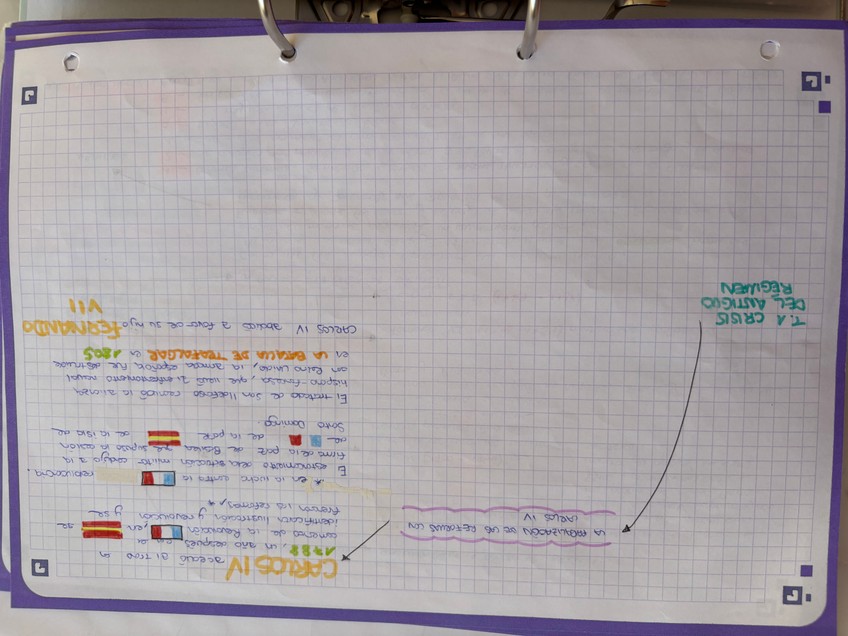 T.1 CRISIS
DEL ANTIGUO
RÉGIMEN
LA PARALIZACIÓN DE LAS REFORMAS CON
CARLOS IV
CARLOS IV accedió al trono en
1788, un año después, en el
comienzo de la Revolución en se
identifican ilustración y revolución y se
frenan las reformas,*
* en la lucha contra la república.
El estancamiento de la situación militar condujo a la
firma de la paz de Basilea que supuso la cesión
de a de la parte de la isla de
Santo Domingo
El tratado de San Ildefonso reanudó la alianza
hispano-francesa, que llevó al enfrentamiento naval
con Reino Unido, la armada española fue destruida
en LA BATALLA DE TRAFALGAR en 1805
CARLOS IV abdicó a favor de su hijo FERNANDO
VII